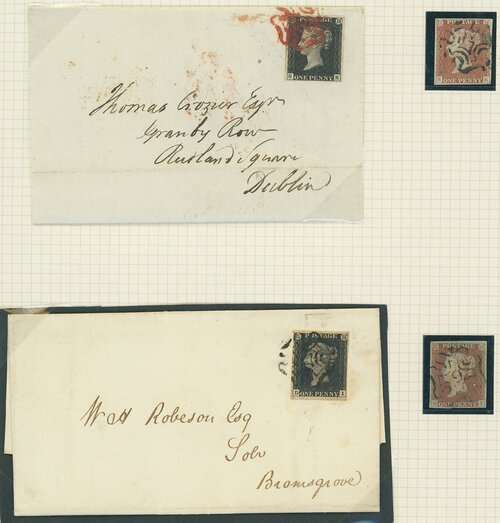 POSTAGE
K
ONE PENNY
Thomas Crozier Esqr
Granby Row
Rutland Square
Dublin
ONE PENNY
K
POSTAGE
D I
ONE PENNY
W H Robeson Esq
Solr
Bromsgrove
POSTAGE
D I
ONE PENNY